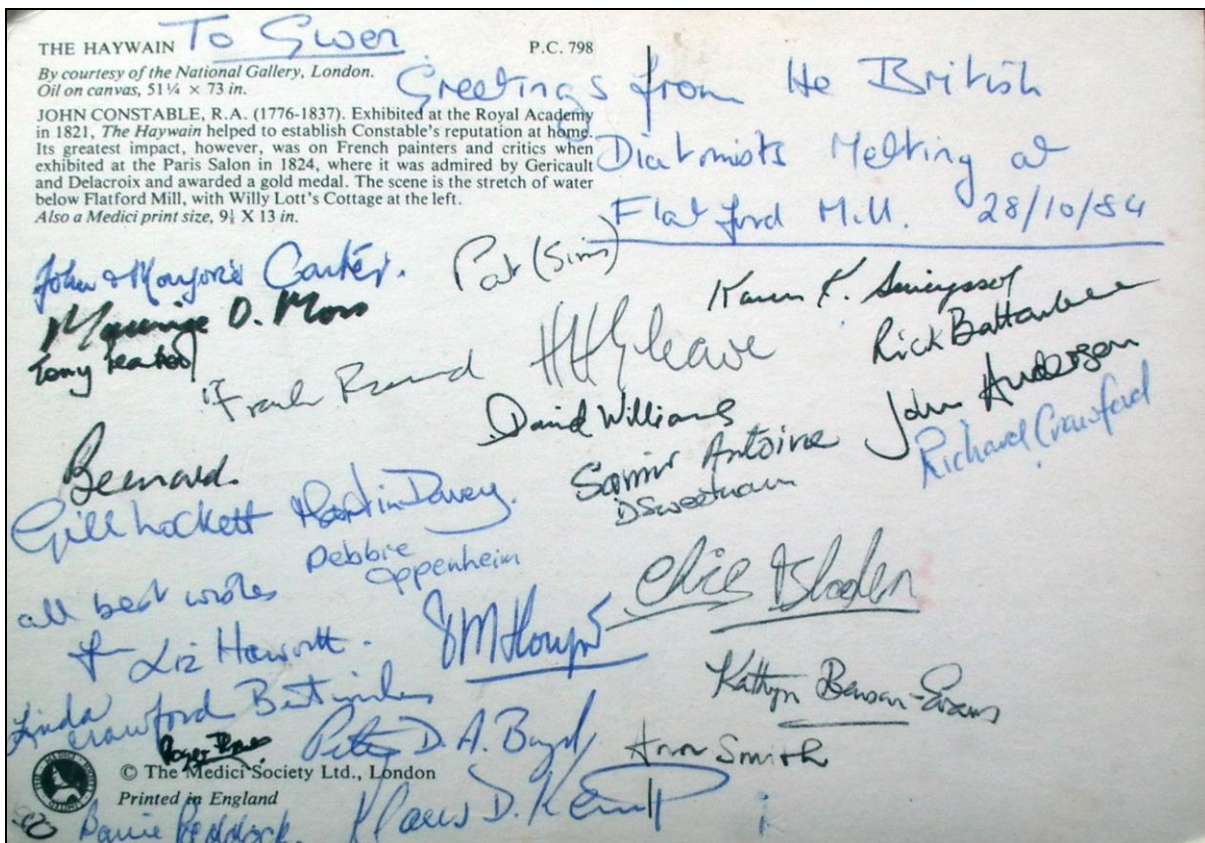 THE HAYWAIN To Gwen P.C. 798
By courtesy of the National Gallery, London.
Oil on canvas, 51¼ × 73 in.
JOHN CONSTABLE, R.A. (1776-1837). Exhibited at the Royal Academy
in 1821, The Haywain helped to establish Constable's reputation at home.
Its greatest impact, however, was on French painters and critics when
exhibited at the Paris Salon in 1824, where it was admired by Gericault
and Delacroix and awarded a gold medal. The scene is the stretch of water
below Flatford Mill, with Willy Lott's Cottage at the left.
Also a Medici print size, 9½ X 13 in.
Greetings from the British
Diatomists Meeting at
Flatford Mill. 28/10/84
John & Marjorie Carter.
Pat (Sims)
Karen K.
Maurice D. Moss
Tony
Frank Round
HHGleave
Rick Battarbee
David Williams
John Anderson
Bernard.
Samir Antoine
Richard Crawford
D Sweetnam
Gill Lockett
Martin Davey.
Debbie
Oppenheim
all best wishes
from Liz Haworth.
Kathryn Benson-Evans
Linda
Crawford Best wishes
Peter D. A. Boyd
Ann Smith
© The Medici Society Ltd., London
Printed in England
Barrie Paddock
Klaus D. Kemp